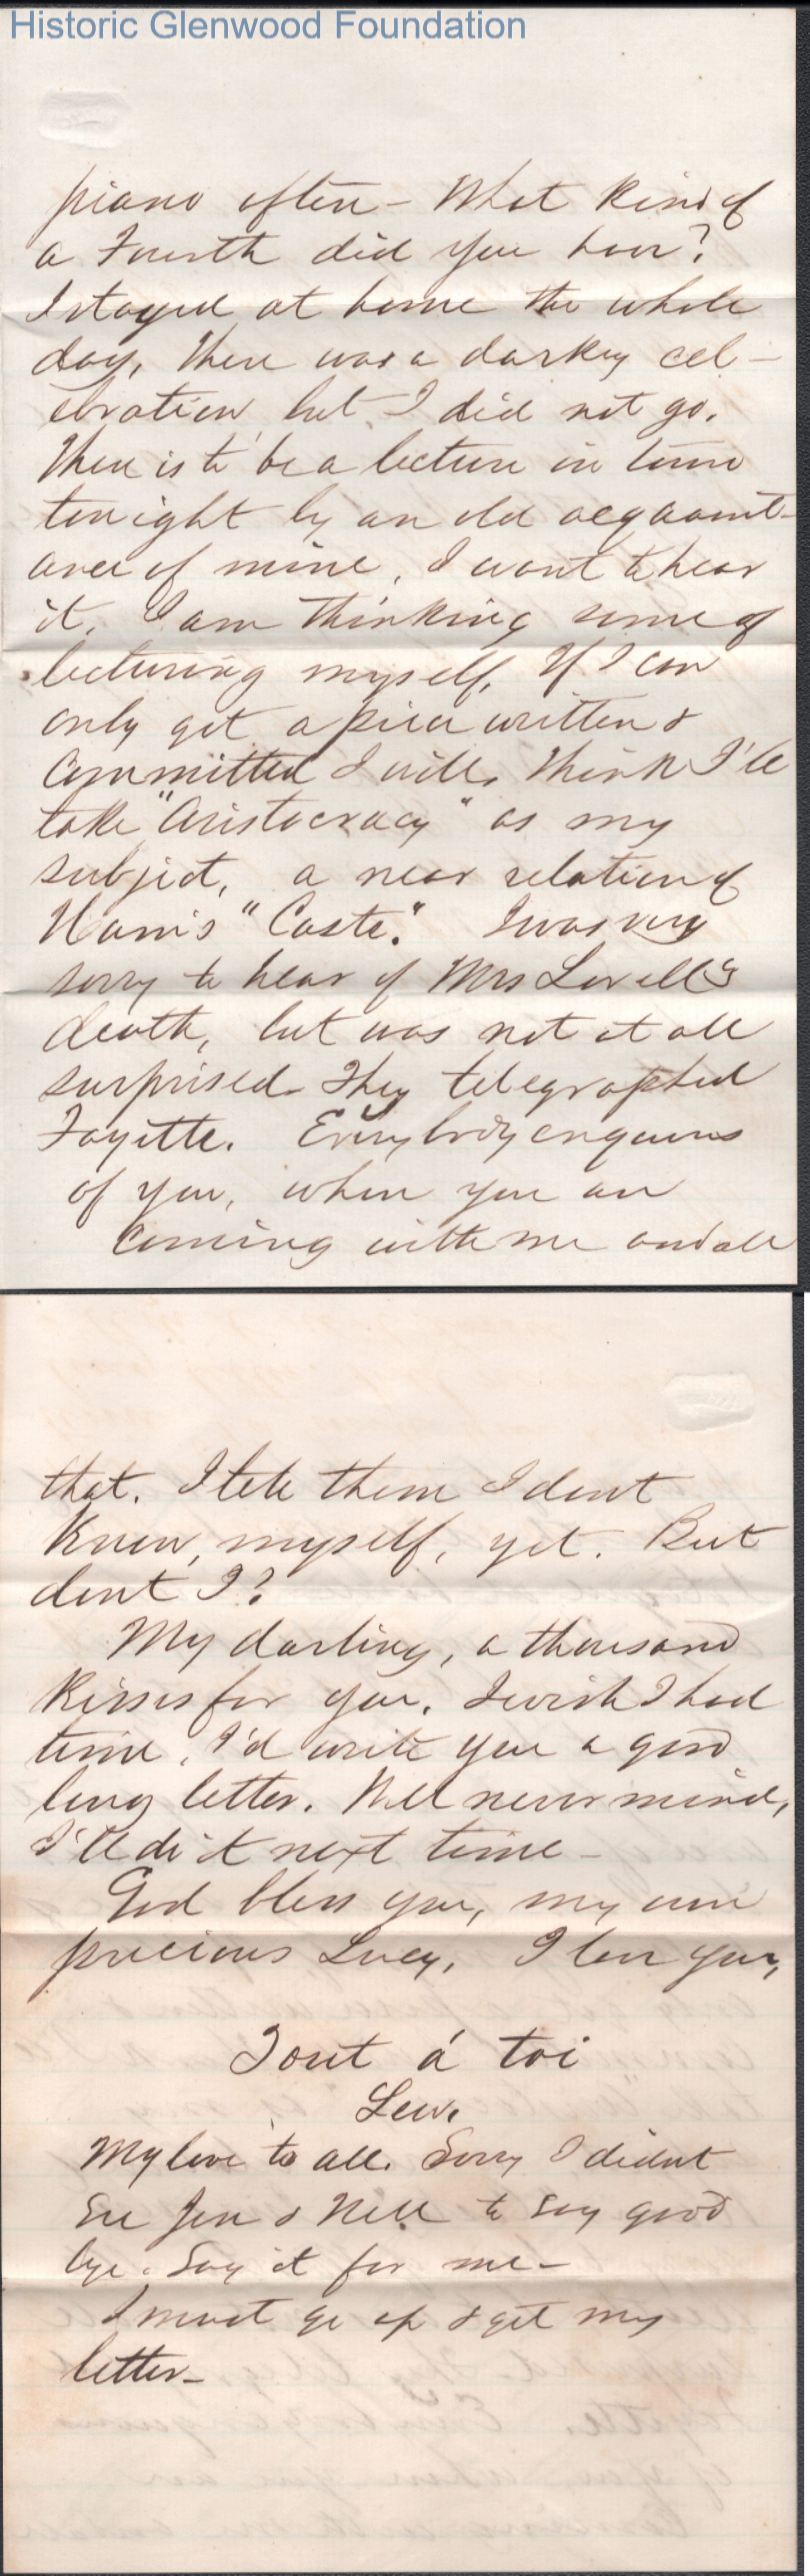 Historic Glenwood Foundation
piano often - What kind of
a Fourth did you have?
I stayed at home the whole
day. There was a darkey cel-
ebration, but I did not go.
There is to be a lecture in town
tonight by an old acquaint-
ance of mine, I want to hear
it. I am thinking some of
lecturing myself. If I can
only get a piece written &
Committed I will. Think I'll
take "Aristocracy" as my
subject, a near relation of
"Caste." I was very
sorry to hear of Mrs Lovell's
death, but was not at all
surprised. They telegraphed
Fayette. Everybody enquires
of you, when you are
coming with me and all
that. I tell them I dont
know, myself, yet. But
dont I?
My darling, a thousand
kisses for you. I wish I had
time, I'd write you a good
long letter. Well never mind,
I'll do it next time -
God bless you, my own
precious Lucy. I love you,
Tout á toi
Lew.
My love to all. Sorry I didnt
see Jen & Nell to say good
bye. Say it for me -
I must go up & get my
letter -